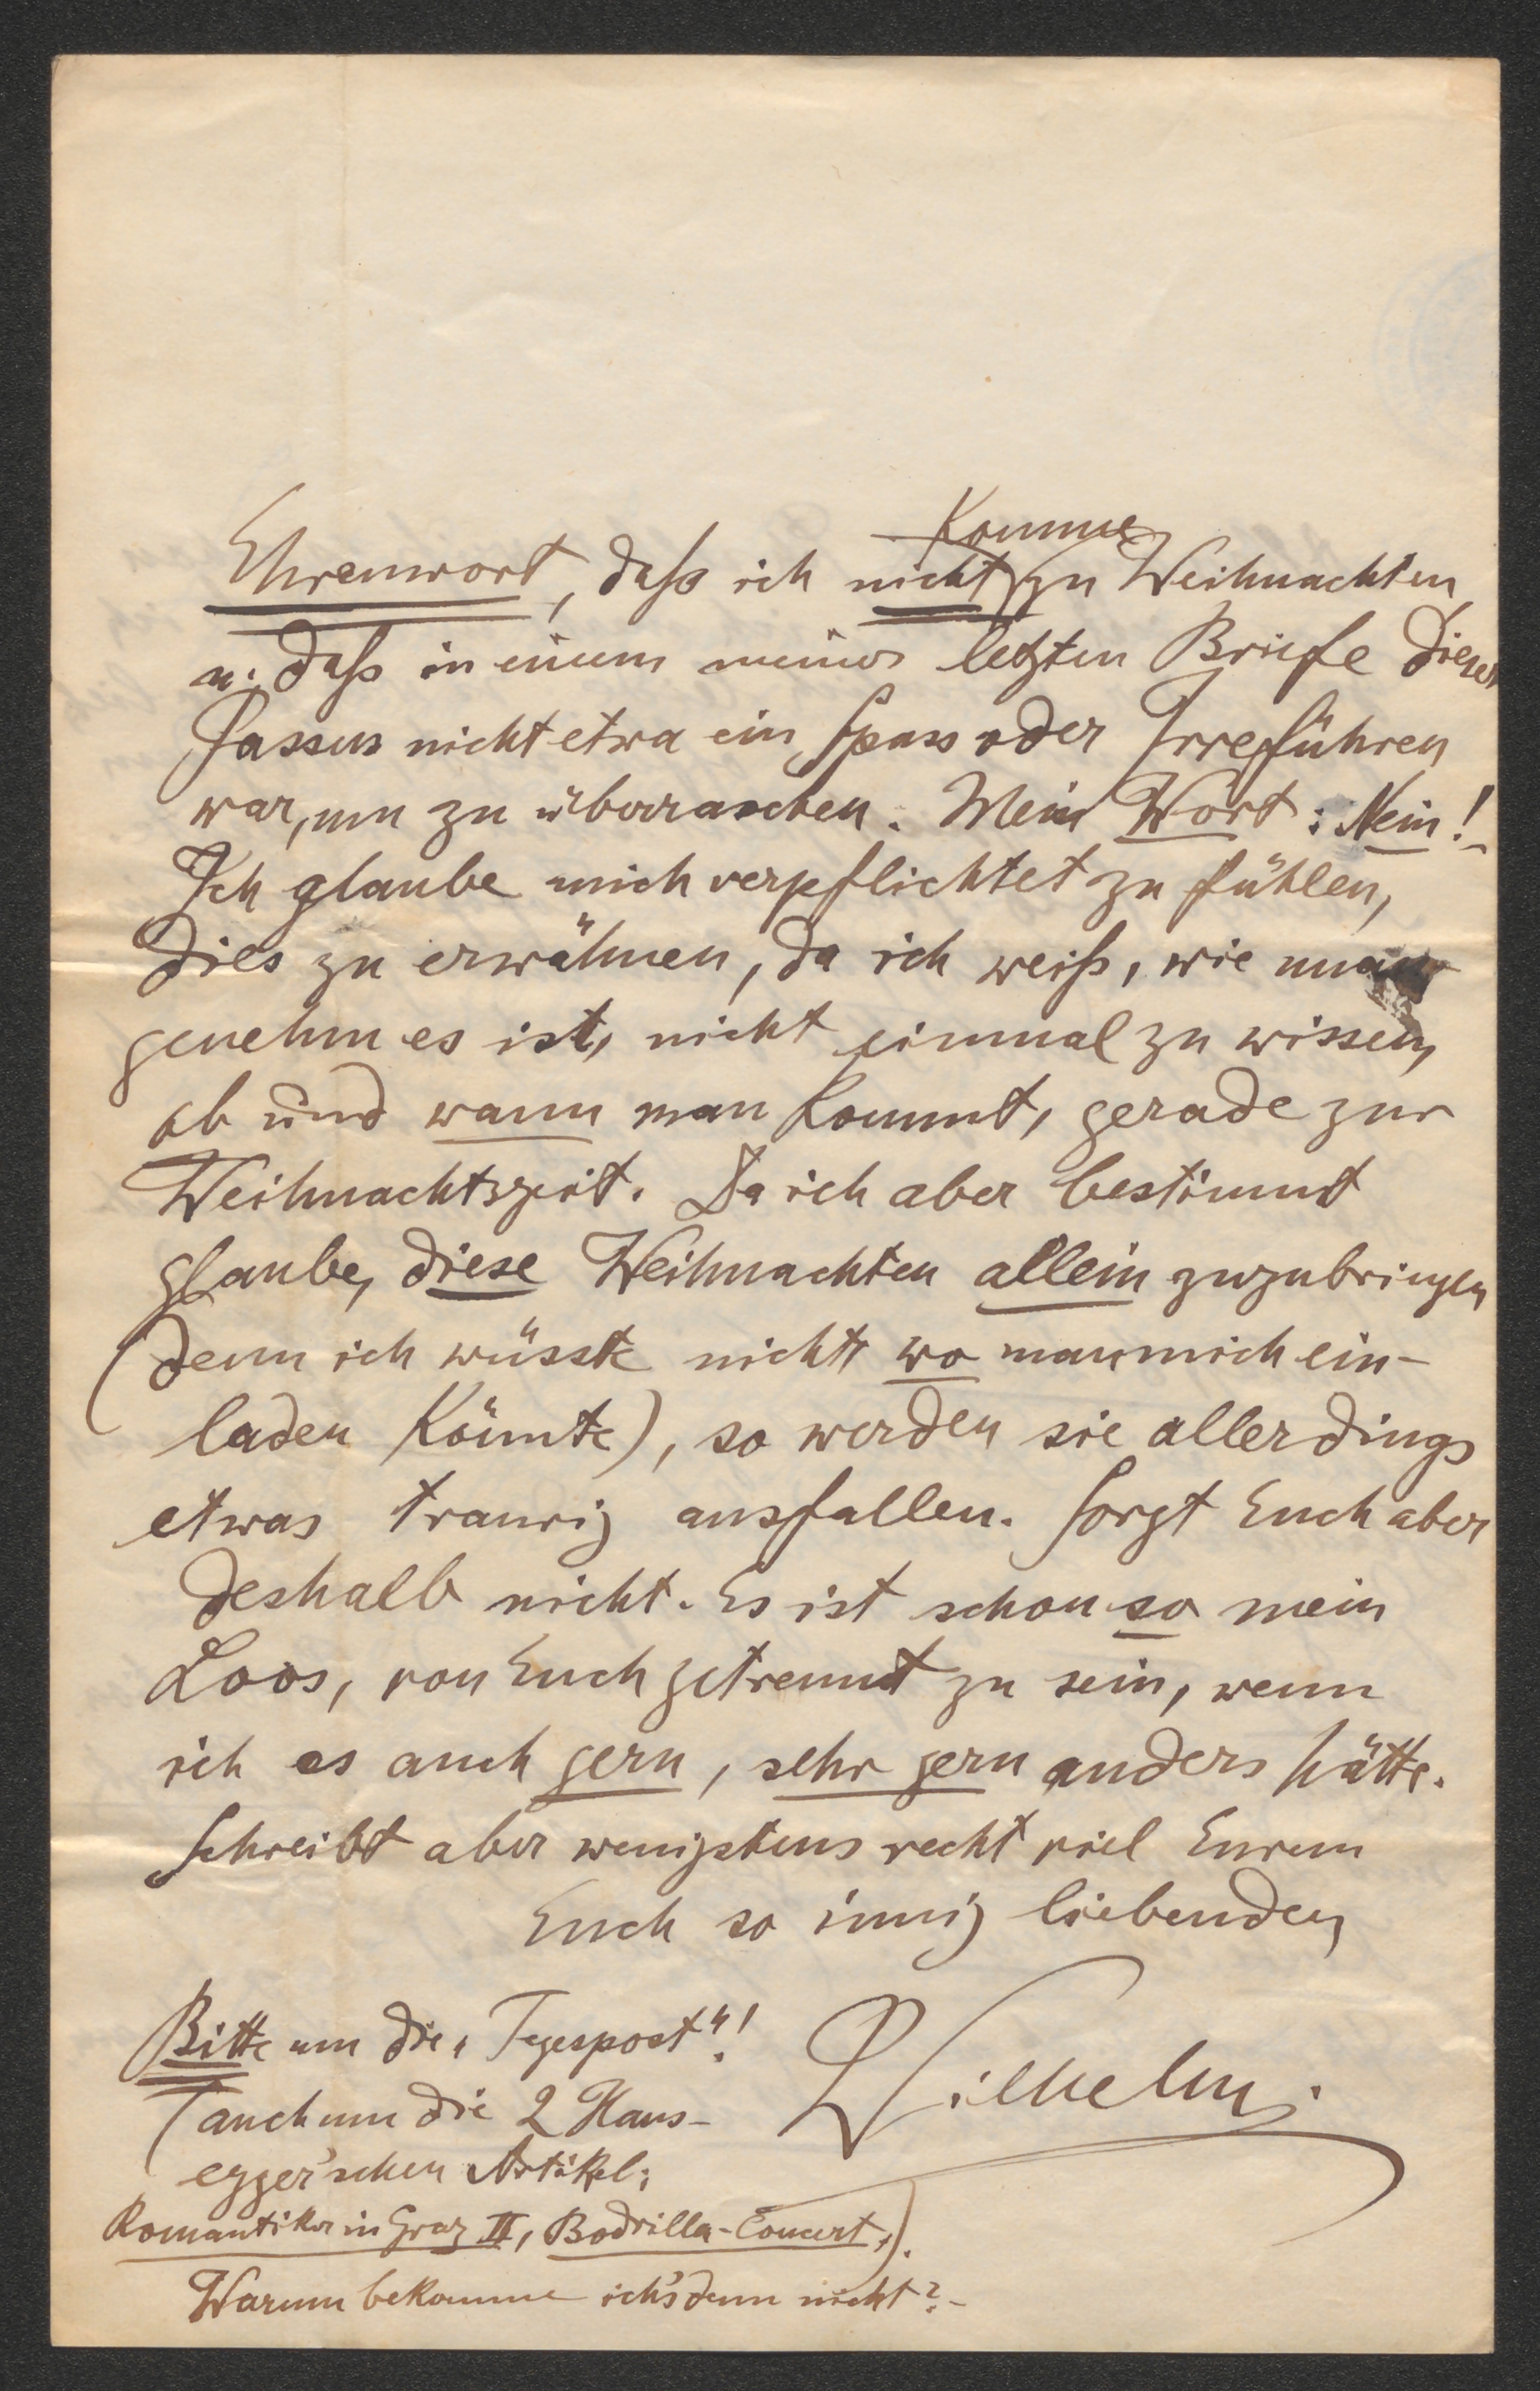 Ehrenwort, daß ich nicht komme zu Weihnachten
u. daß in einem meiner letzten Briefe dieser
Passus nicht etwa ein Spass oder Irreführen
war, um zu überraschen. Mein Wort: Nein! –
Ich glaube mich verpflichtet zu fühlen,
dies zu erwähnen, da ich weiß, wie unan-
genehm es ist, nicht einmal zu wissen,
ob und wann man kommt, gerade zur
Weihnachtszeit. Da ich aber bestimmt
glaube, diese Weihnachten allein zuzubringen
(denn ich wüsste nicht wo man mich ein-
laden könnte), so werden sie allerdings
etwas traurig ausfallen. Sorgt Euch aber
deshalb nicht. Es ist schon so mein
Loos, von Euch getrennt zu sein, wenn
ich es auch gern, sehr gern anders hätte.
Schreibt aber wenigstens recht viel Eurem
Euch so innig liebenden
Wilhelm.
Bitte um die „Tagespost“!
(auch um die 2 Haus-
egger'schen Artikel:
Romantiker in Graz II, Bodrilla-Concert,).
Warum bekomme ich's denn nicht? –